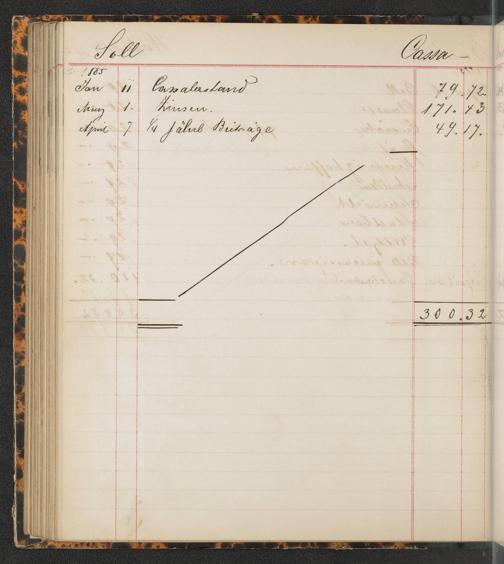 Soll Cassa -
1885
Jan 11 Cassabestand 79.72
März 1. Zinsen. 171.43
April 7 1/4 Jährl Beiträge 49.17.
300.32